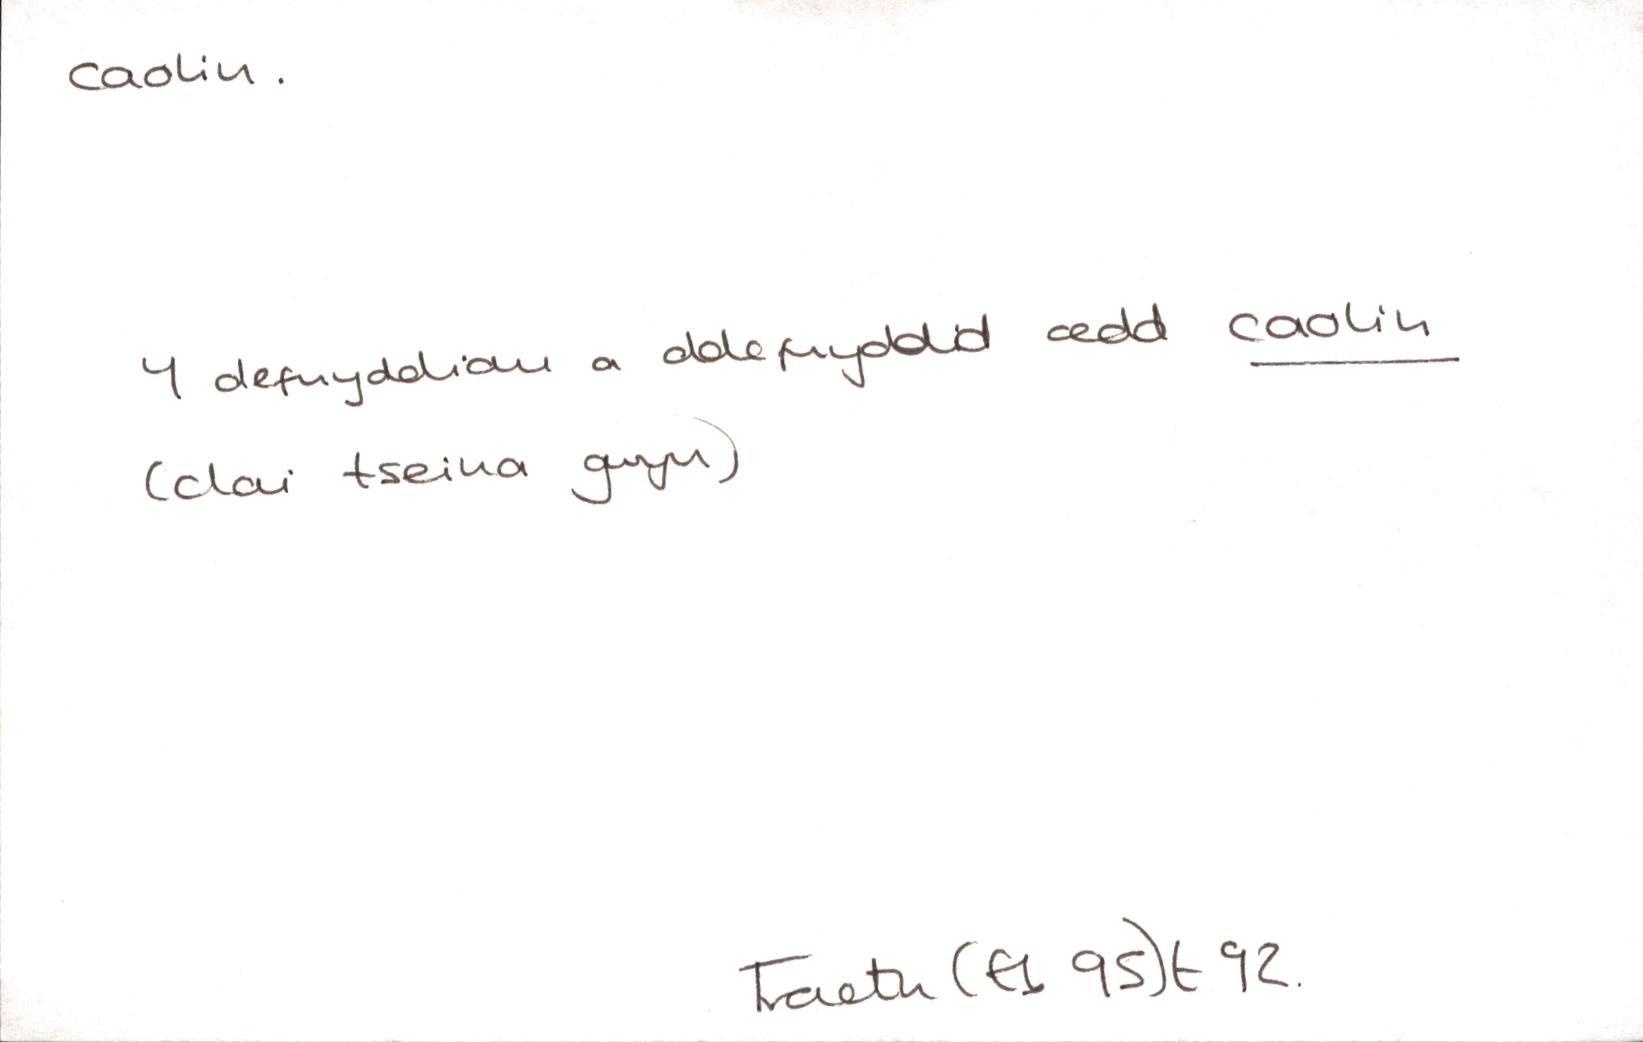 caolin.
Y defnyddiau a ddefnyddid oedd caolin
(clai tseina gwyn)
Traeth (Eb 95) t 92.